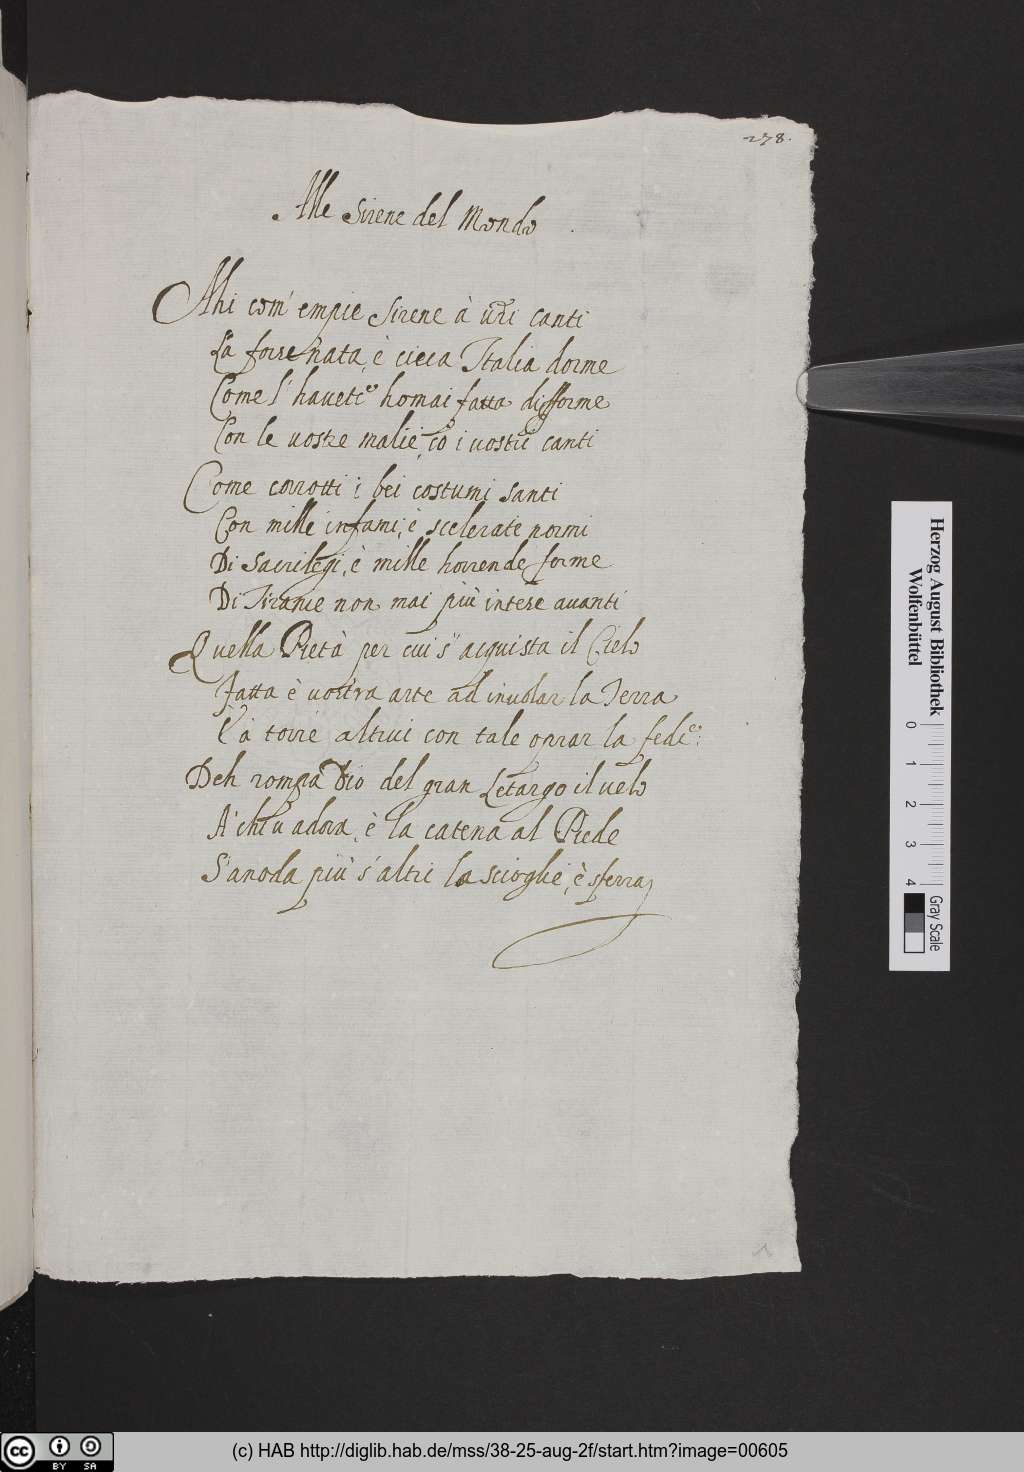 278.
Alle Sirene del Mondo
Ahi com' empie Sirene à uri canti
La forsenata, è cieca Italia dorme
Come l' hauete homai fatta difforme
Con le uostre malie, co i uostri canti
Come corrotti i bei costumi santi
Con mille infami, è scelerate normi
Di Sacrilegi, è mille horrende forme
Di Tiranie non mai più intese auanti
Quella Pietà per cui s' acquista il Cielo
Fatta è uostra arte ad inuolar la Terra
E à torre altrui con tale oprar la fede:
Deh rompa Dio del gran Letargo il uelo
A' chi u adora, è la catena al Piede
S' anoda più s' altri la scioglie, è sferra
Herzog August Bibliothek
Wolfenbüttel
0 1 2 3 4
Gray Scale
cc BY SA
(c) HAB http://diglib.hab.de/mss/38-25-aug-2f/start.htm?image=00605